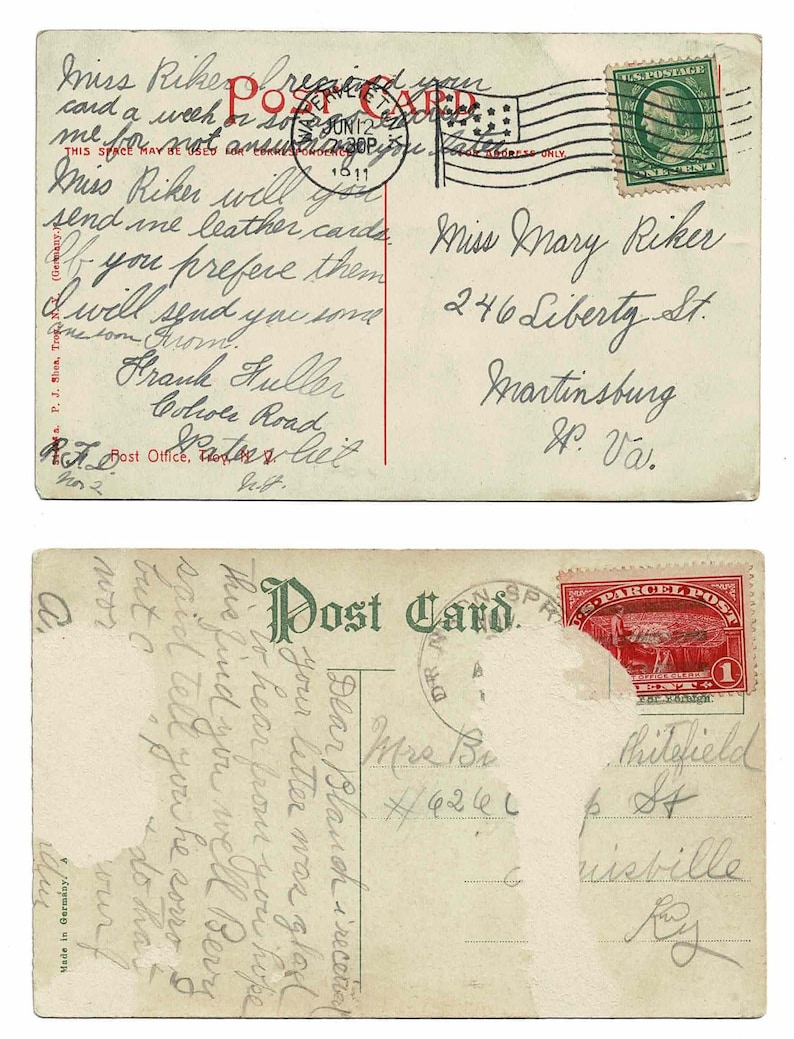 Miss Riker I received your
card a week or so ago
me for not answering you later
POST CARD
THIS SPACE MAY BE USED FOR CORRESPONDENCE
FOR ADDRESS ONLY.
WATERVLIET
JUN 12
30P
1911
U.S. POSTAGE
ONE CENT
Miss Riker will you
send me leather cards.
If you prefere them
I will send you some
one soon From.
Frank Fuller
Cohoes Road
Watervliet
N.Y.
R.F.D.
No 2
Post Office, Troy, N. Y.
P. J. Shea, Troy, N. Y. (Germany.)
Miss Mary Riker
246 Liberty St.
Martinsburg
W. Va.
Post Card.
DRAWSON SPR
U.S. PARCEL POST
POST OFFICE CLERK
1 CENT
For Foreign.
Mrs
Whitefield
#626
St
Louisville
Ky
Dear Blanch i received
your letter was glad
to hear from you hope
this find you well Berry
said tell you he sorro
but
do that
your
Made in Germany.